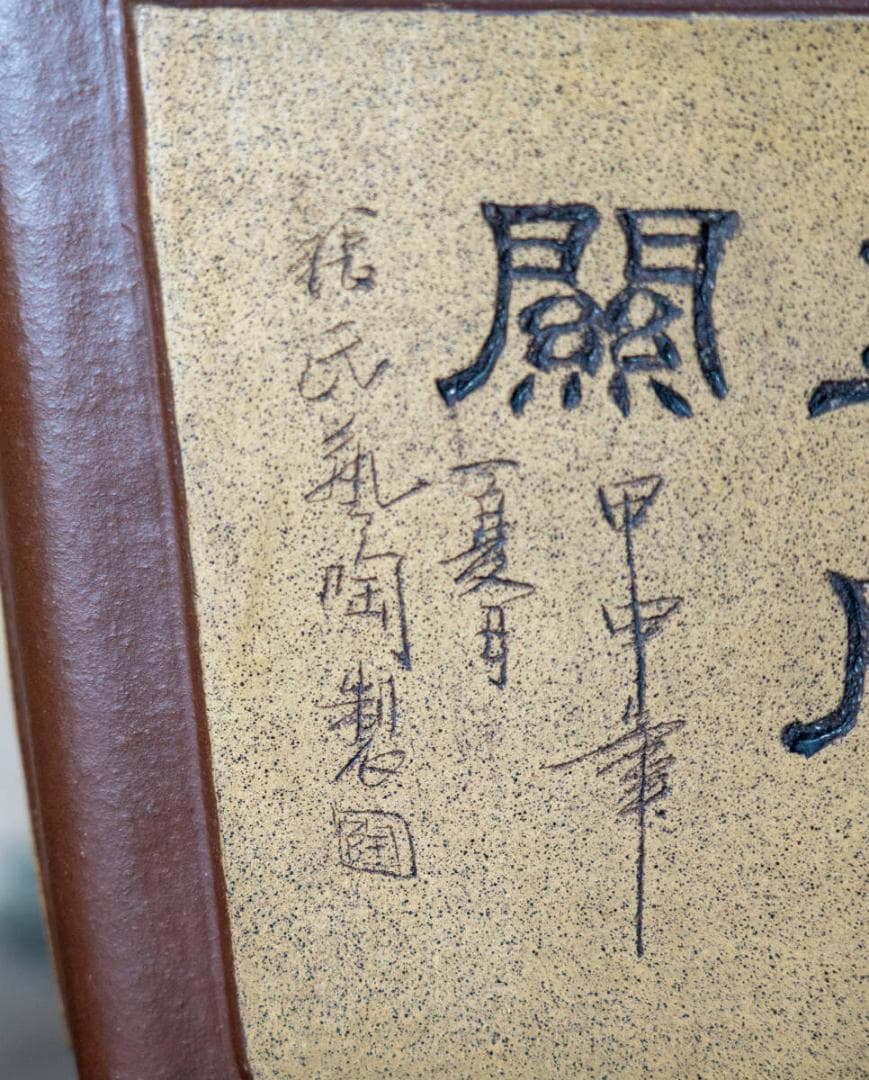 關
甲申年
夏月
張氏藝陶製
陶